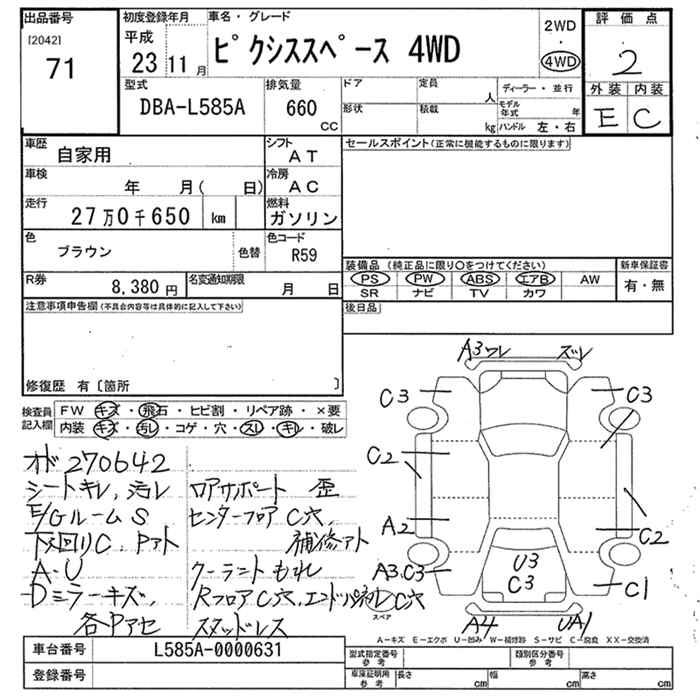 出品番号
[2042]
71
初度登録年月
平成
23 11月
車名・グレード
ピクシススペース 4WD
2WD
・
4WD
評価点
2
外装 内装
E C
型式
DBA-L585A
排気量
660
cc
ドア
形状
定員
人
積載
kg
ディーラー・並行
モデル年式
年
ハンドル 左・右
車歴
自家用
シフト
AT
車検
年 月( 日)
冷房
AC
走行
27万0千650 km
燃料
ガソリン
色
ブラウン
色替
色コード
R59
R券
8,380円
名変通知期限
月 日
セールスポイント(正常に機能するものに限ります)
装備品 (純正品に限り○をつけてください)
新車保証書
PS PW ABS エアB AW
有・無
SR ナビ TV カワ
後日品
注意事項申告欄(不具合内容等は具体的に記入して下さい)
修復歴 有〔箇所 〕
検査員
記入欄
FW キズ・飛石・ヒビ割・リペア跡・×要
内装 キズ・汚レ・コゲ・穴・スレ・キレ・破レ
オド 270642
シートキレ、汚レ
E/GルームS
下回りC、Pアト
A・U
Dミラーキズ、
各Pアセ
ロアサポート 歪
センターフロア C穴、
補修アト
クーラントもれ
Rフロア C穴、エンドパネルC穴
スタッドレス
A3ワレ
ズレ
C3
C3
C2
A2
C2
A3.C3
U3
C3
C1
スペア
A4
UA1
A-キズ E-エクボ U-凹み W-補修跡 S-サビ C-腐食 XX-交換済
車台番号
L585A-0000631
登録番号
型式指定番号
参考
類別区分番号
参考
車庫証明用
参考
長さ
cm
幅
cm
高さ
cm